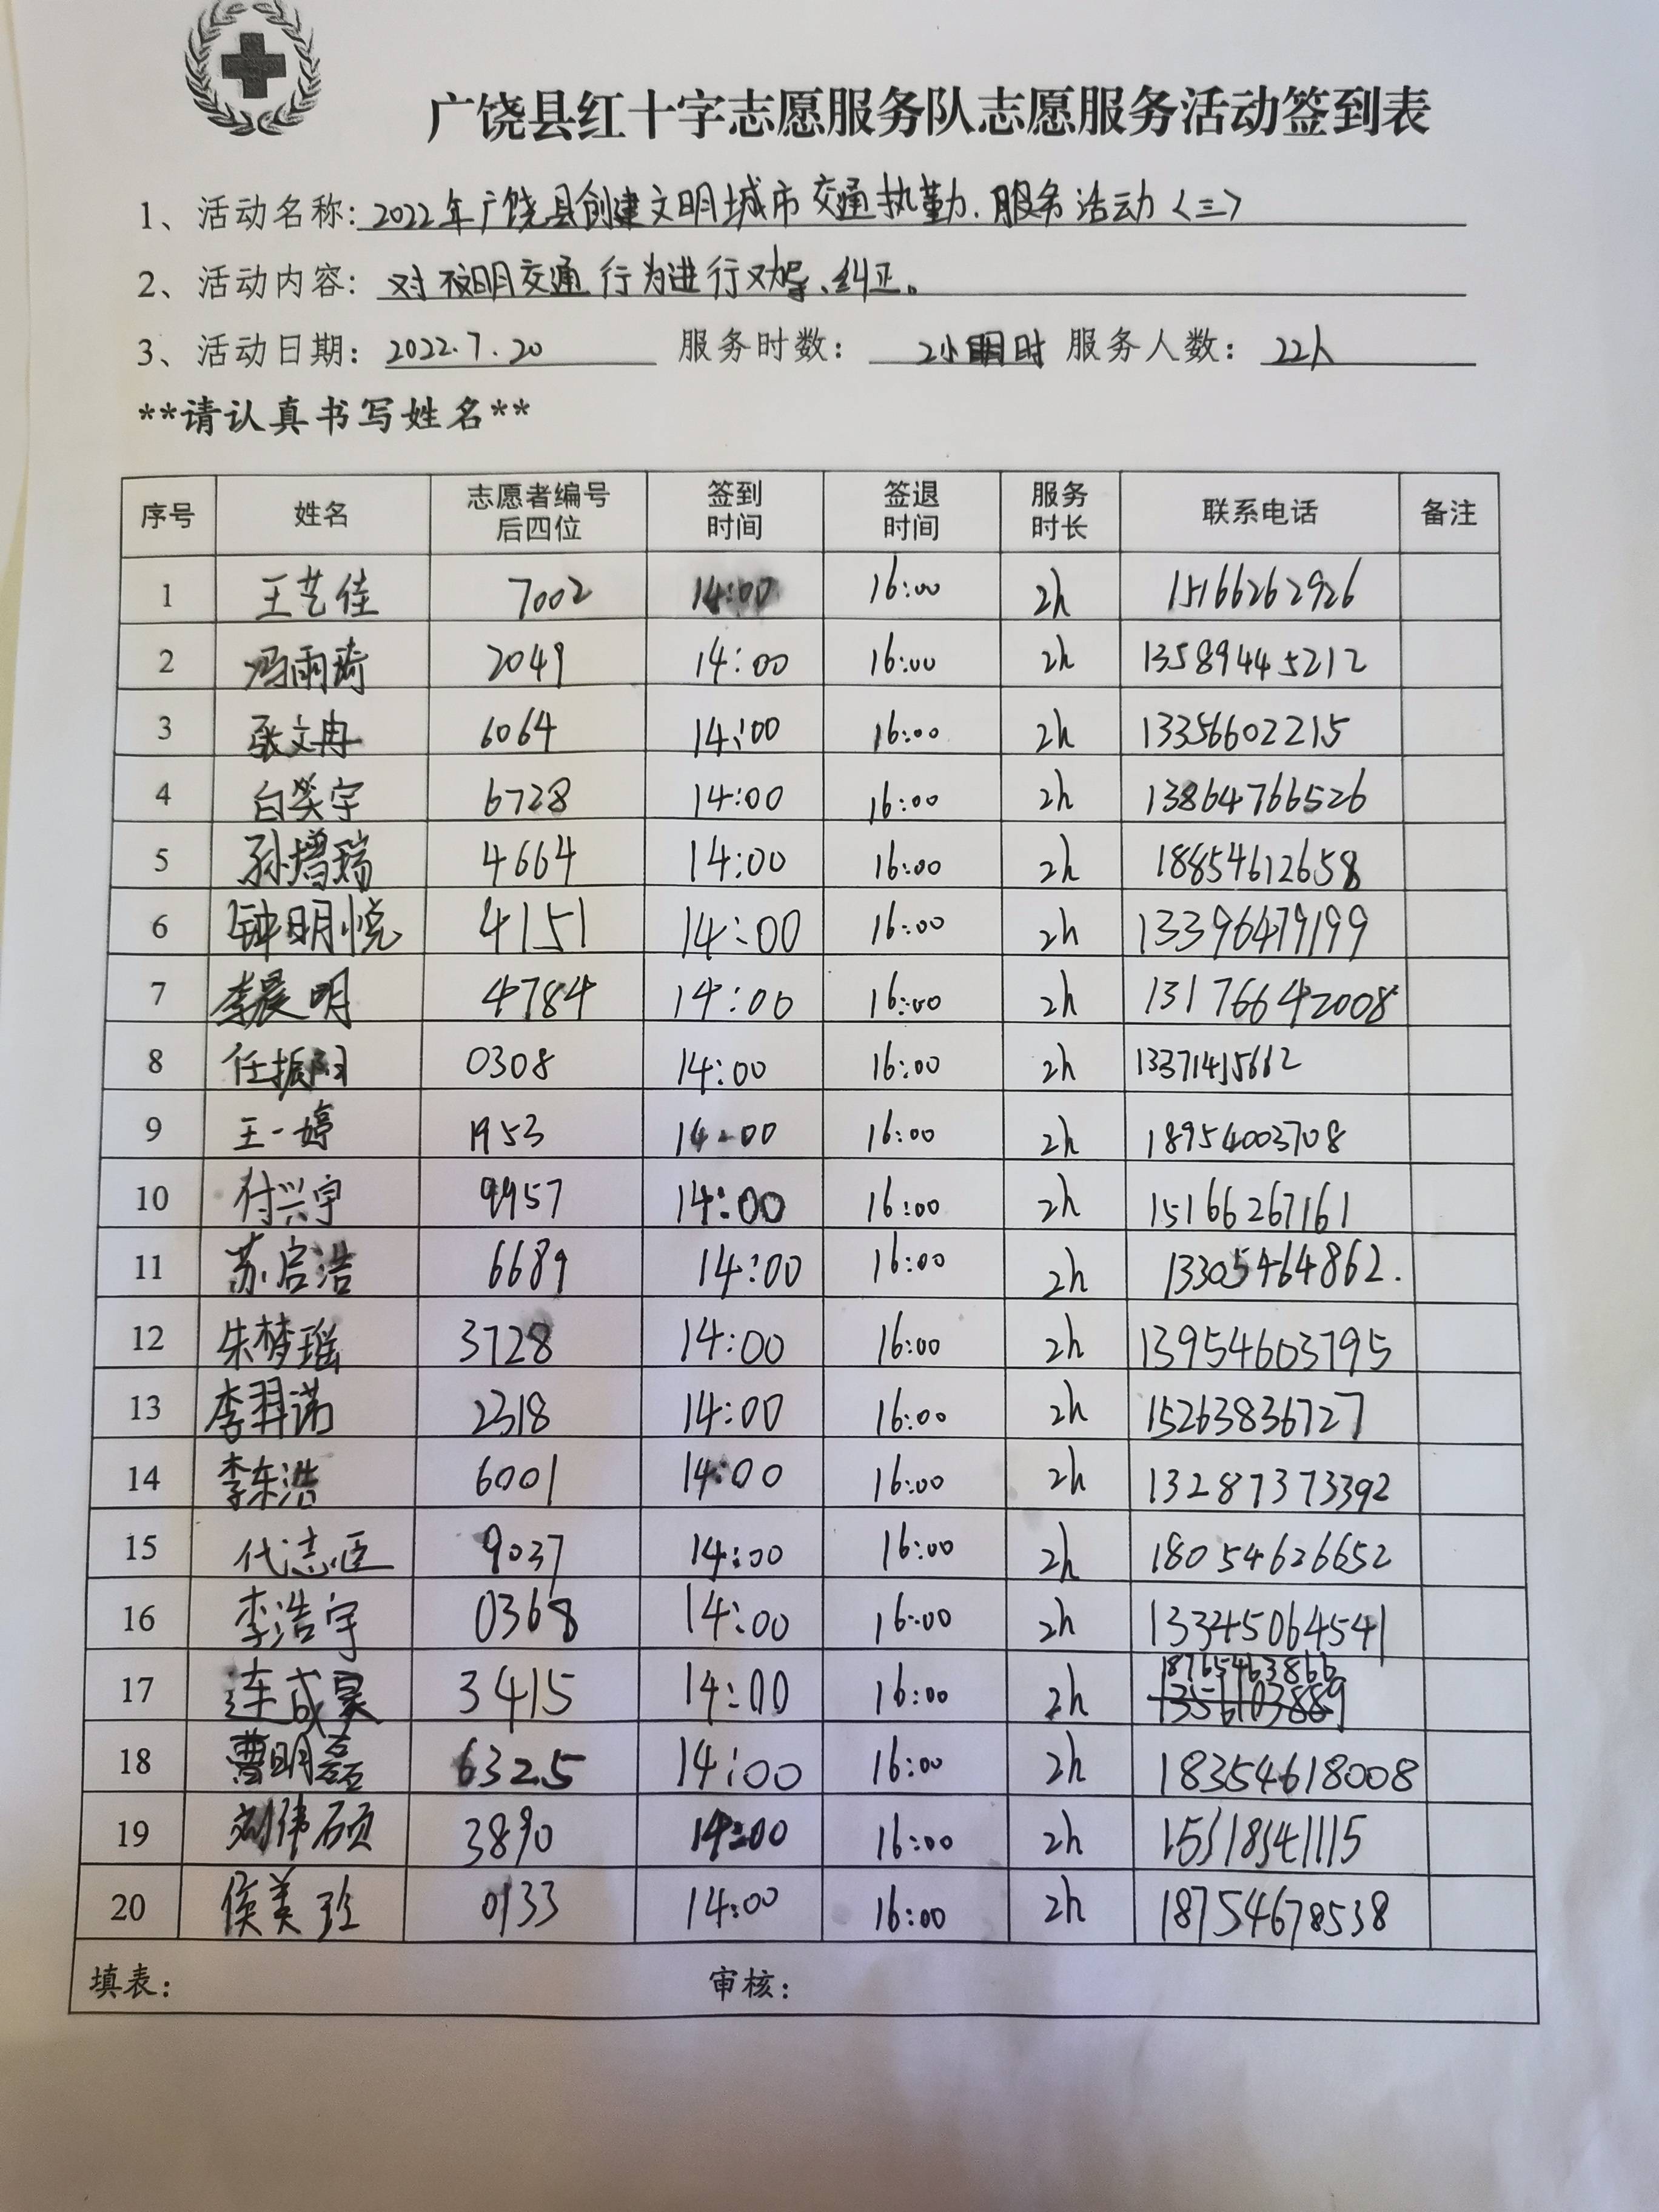 广饶县红十字志愿服务队志愿服务活动签到表
1、活动名称: 2022年广饶县创建文明城市交通执勤、服务活动〈三〉
2、活动内容: 对不文明交通行为进行劝导、纠正。
3、活动日期: 2022.7.20 服务时数: 2小时 服务人数: 22人
**请认真书写姓名**
序号 姓名 志愿者编号后四位 签到时间 签退时间 服务时长 联系电话 备注
1 王艺佳 7002 14:00 16:00 2h 15166262926
2 冯雨琦 2049 14:00 16:00 2h 13589445212
3 张文冉 6064 14:00 16:00 2h 13356602215
4 白荧宇 6728 14:00 16:00 2h 13864766526
5 孙增瑞 4664 14:00 16:00 2h 18854612658
6 钟明悦 4151 14:00 16:00 2h 13396479199
7 李晨明 4784 14:00 16:00 2h 13176642008
8 任振阳 0308 14:00 16:00 2h 13371415662
9 王一婷 1953 14:00 16:00 2h 18954003708
10 付兴宇 9957 14:00 16:00 2h 15166267161
11 苏启浩 6689 14:00 16:00 2h 13305464862.
12 朱梦瑶 3728 14:00 16:00 2h 13954603795
13 李羿诺 2318 14:00 16:00 2h 15263836727
14 李东浩 6001 14:00 16:00 2h 13287373392
15 代志臣 9037 14:00 16:00 2h 18054626652
16 李浩宇 0368 14:00 16:00 2h 13345064541
17 连成昊 3415 14:00 16:00 2h 18765463866
13561103889
18 曹明磊 6325 14:00 16:00 2h 18354618008
19 刘伟硕 3890 14:00 16:00 2h 15318341115
20 侯美珍 0133 14:00 16:00 2h 18754678538
填表: 审核: